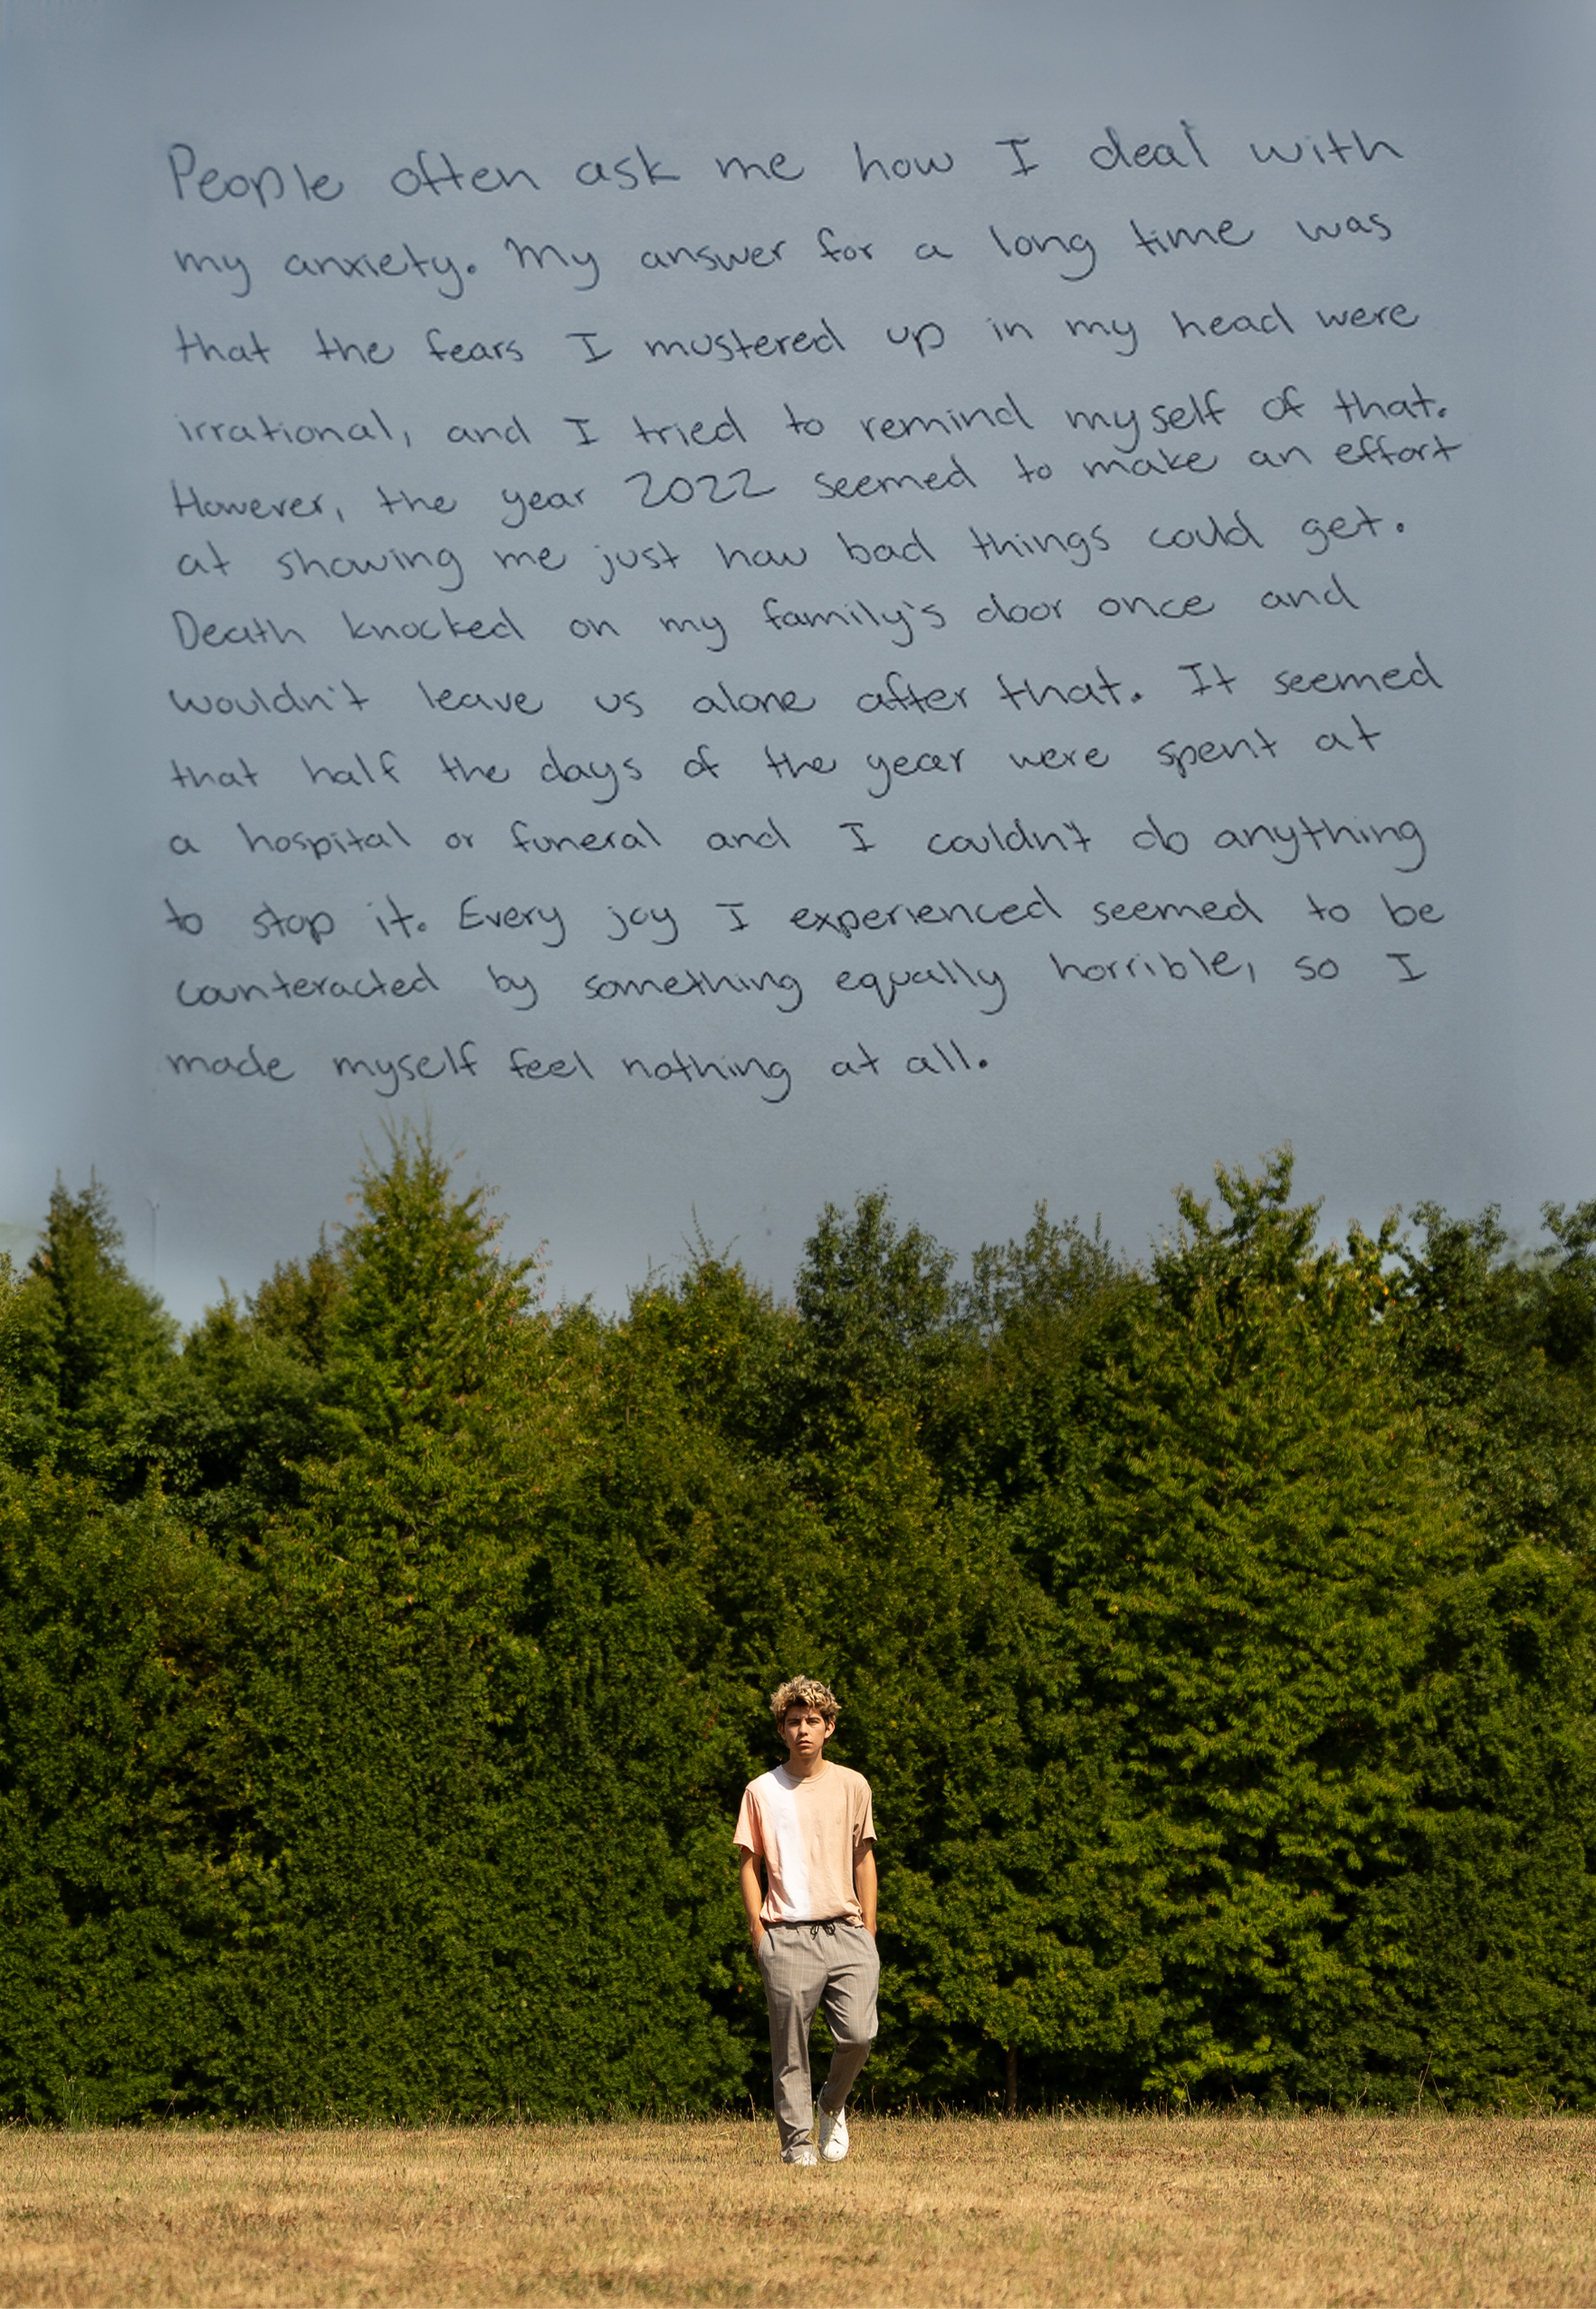 People often ask me how I deal with
my anxiety. My answer for a long time was
that the fears I mustered up in my head were
irrational, and I tried to remind myself of that.
However, the year 2022 seemed to make an effort
at showing me just how bad things could get.
Death knocked on my family's door once and
wouldn't leave us alone after that. It seemed
that half the days of the year were spent at
a hospital or funeral and I couldn't do anything
to stop it. Every joy I experienced seemed to be
counteracted by something equally horrible, so I
made myself feel nothing at all.